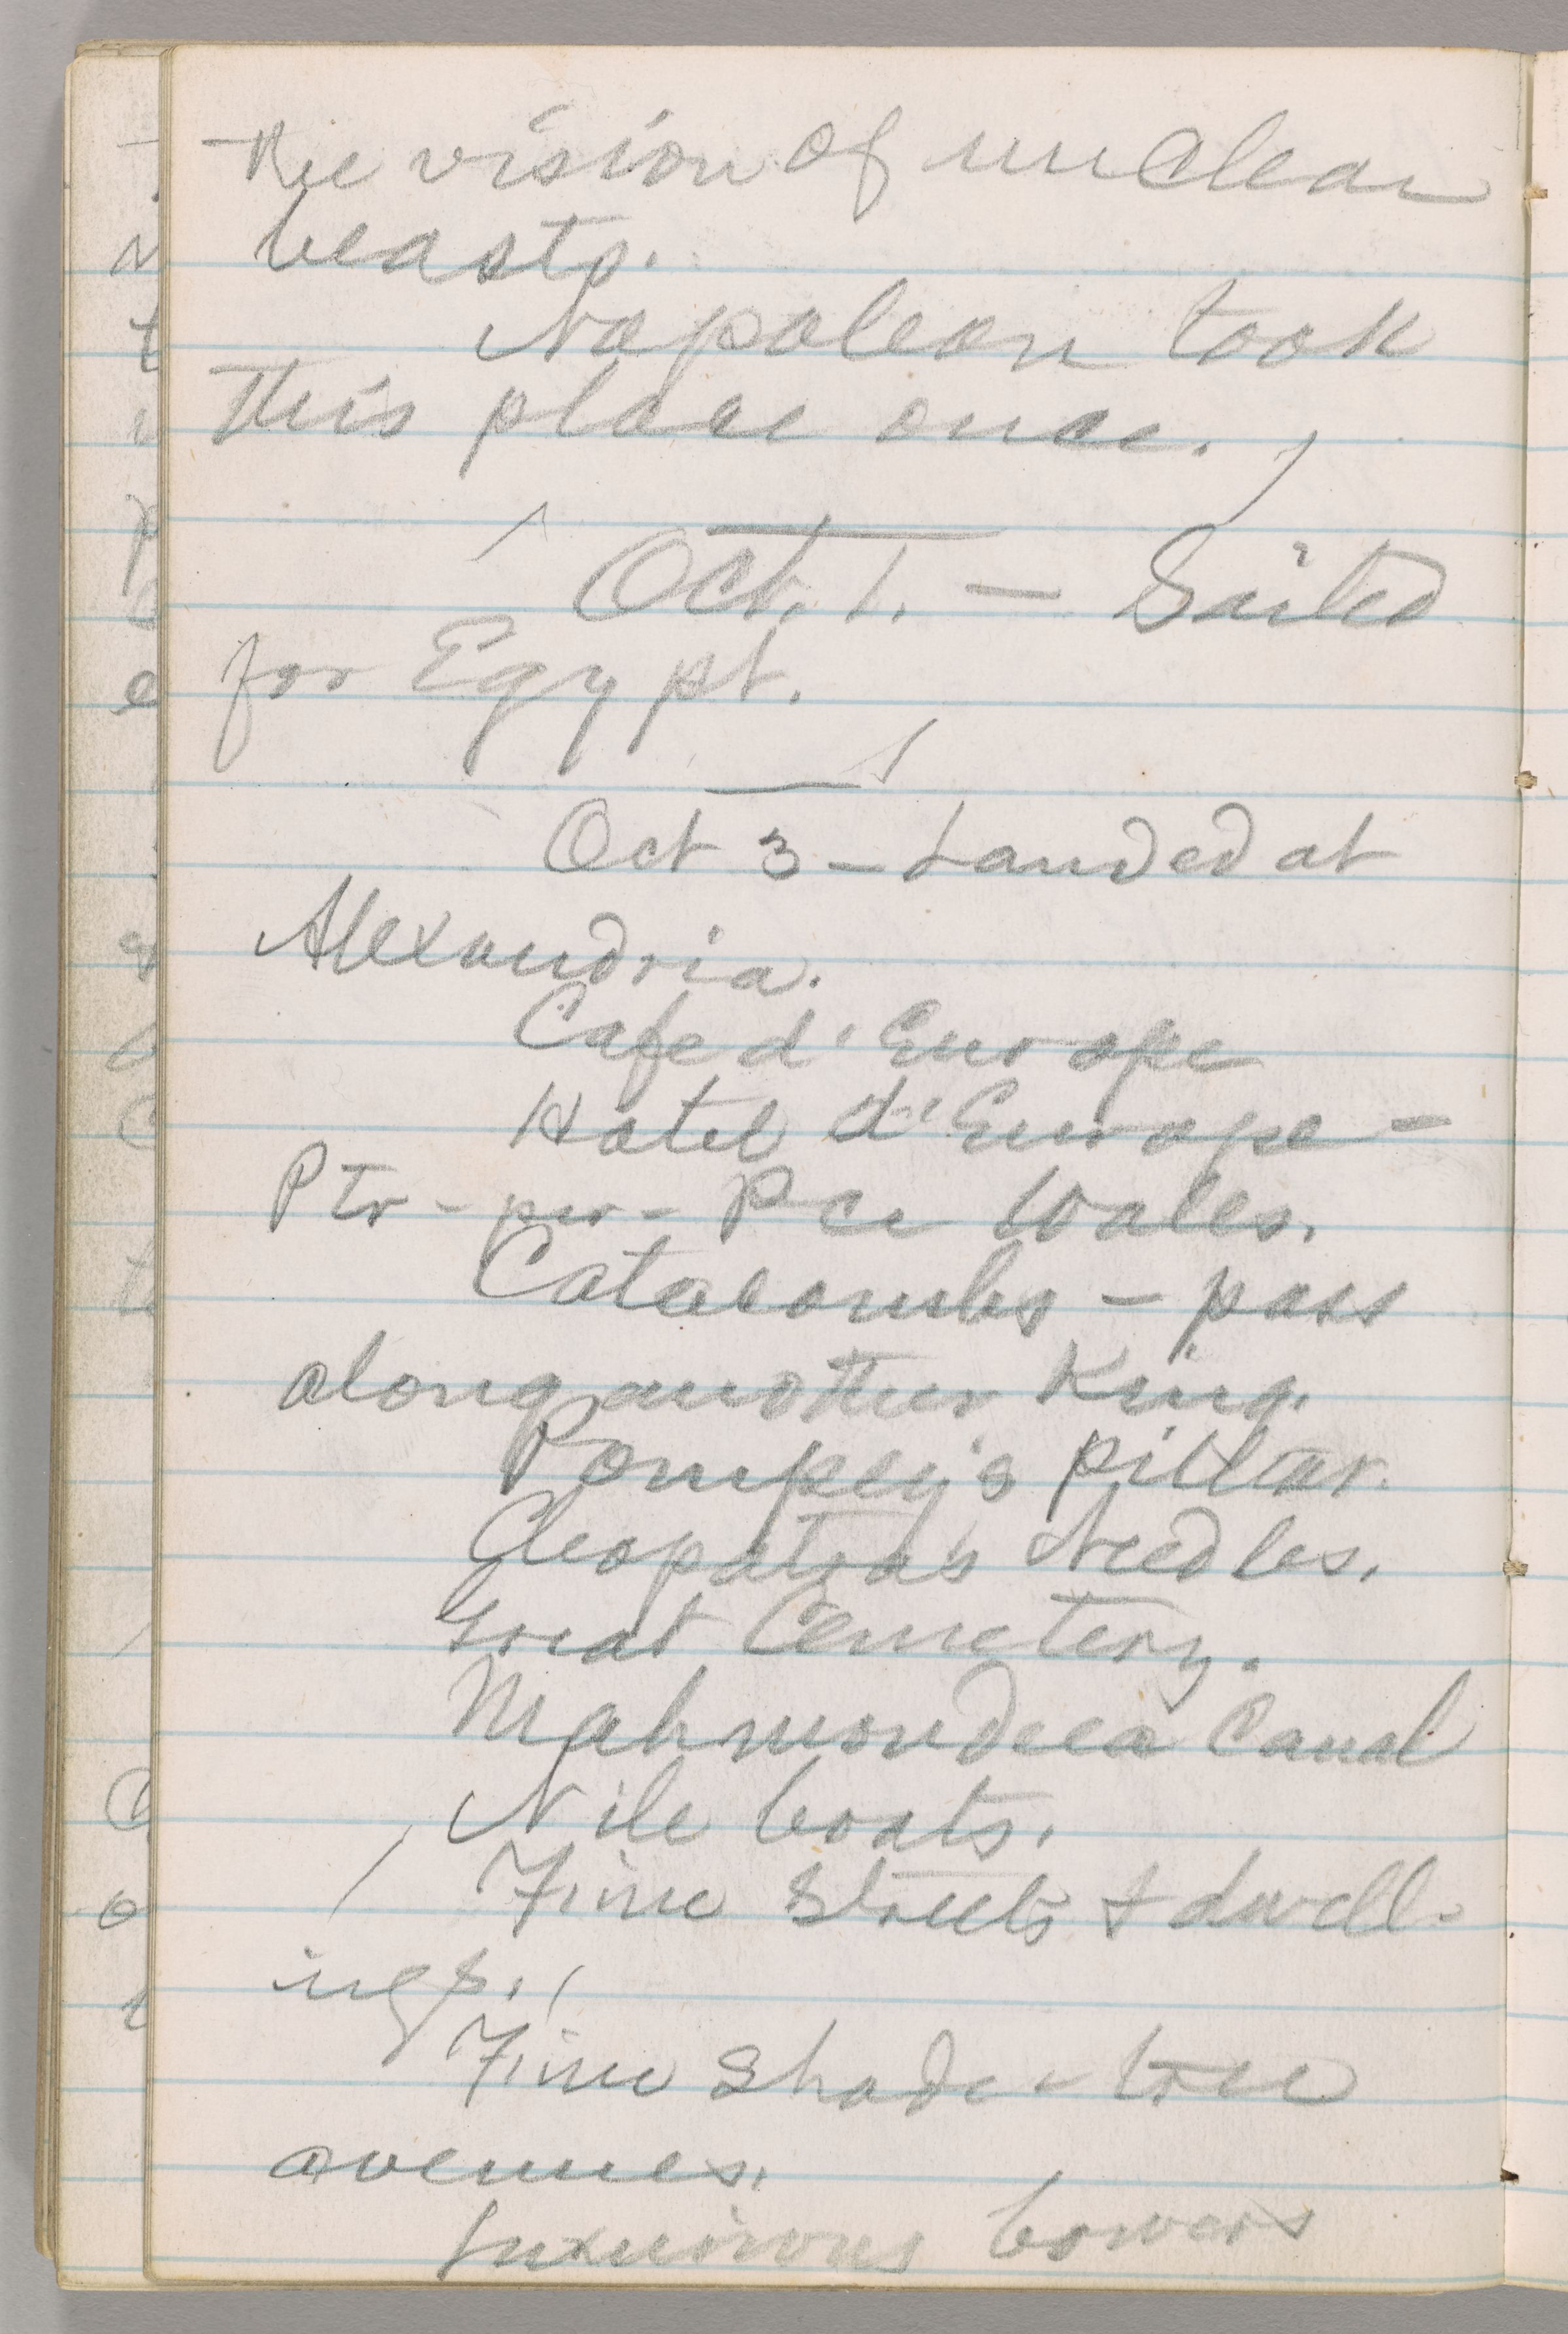 the vision of unclean
beasts.
Napoleon took
this place once.
Oct. 1. — Sailed
for Egypt.
Oct 3 — Landed at
Alexandria.
Cafe d'Europe
Hotel d'Europe —
Ptr - per - Pce Wales.
Catacombs — pass
along another King.
Pompey's pillar.
Cleopatra's Needles.
Great Cemetery.
Mahmoudeea Canal
Nile boats.
Fine Streets & dwell-
ings.
Fine Shade - tree
avenues.
Luxurious bowers